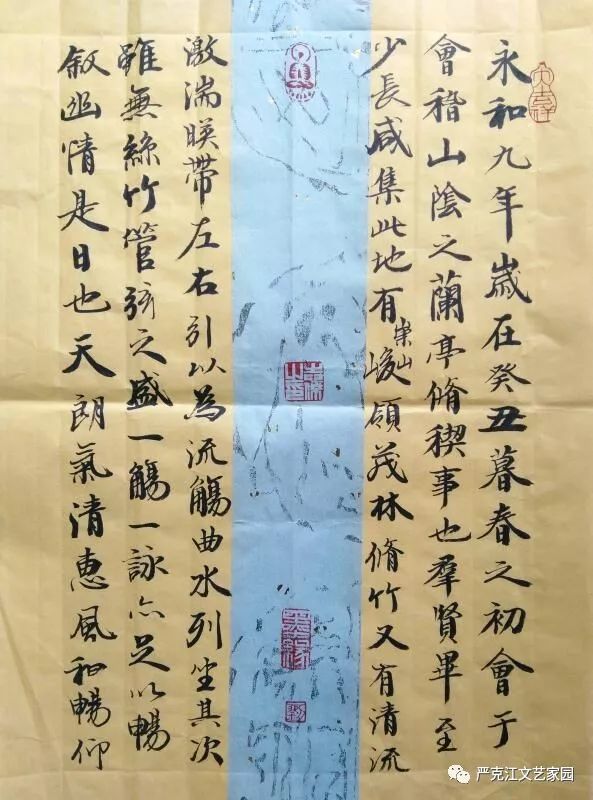 永和九年歲在癸丑暮春之初會于
會稽山陰之蘭亭脩稧事也羣賢畢至
少長咸集此地有崇山峻領茂林脩竹又有清流
激湍暎帶左右引以為流觴曲水列坐其次
雖無絲竹管弦之盛一觴一詠亦足以暢
敘幽情是日也天朗氣清惠風和暢仰
严克江文艺家园